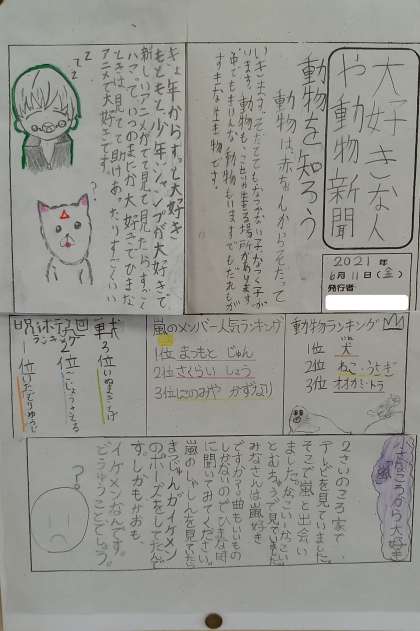 大好きな人
や動物新聞
2021年
6月11日(金)
発行者
動物を知ろう
動物は、赤ちゃんからそだって
いきます。
動物も、
生きる場所があります。
すきな生き物です。
きょ年からずっと大好き
もともと、少年ジャンプが大好きで
新しいアニメがでて見て見たらすごく
ハマって、いつのまにか大好きでひまな
ときは見てって助けあったりすごくいい
アニメで大好きです。
動物ランキング
1位 犬
2位 ねこ・うさぎ
3位 オオカミ・トラ
嵐のメンバー人気ランキング
1位 まつもと じゅん
2位 さくらい しょう
3位 にのみや かずなり
呪術廻戦
ランキング
1位 いたどりゆうじ
2位 ごじょうさとる
3位 いぬまきとげ
小さなころから大好き
2さいのころ家で、
テレビを見ていました。
そこで嵐と出会い
ました。かっこいいかっこいい
とむちゅうで見ていました。
みなさんは嵐好き
ですか?一曲もいいもの
しかないのでひまな時
に聞いてみてください。
嵐のしゃしんを見ていたら
まつじゅんがイケメン
のポーズをしてたんで
す。しかもかおも、
イケメンなんです。
どうゆうことでしょう。